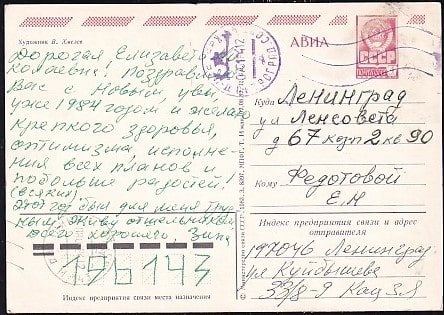 Художник В. Хмелев
Дорогая Елизавета Ни-
колаевна! Поздравляю
Вас с Новым, увы,
уже 1984 годом и желаю
крепкого здоровья,
оптимизма, исполне-
ния всех планов и
побольше радостей!
(всяких)
этот год был для меня
живу отшельником
всего хорошего.
196143
Индекс предприятия связи места назначения
АВИА
СССР
ПОЧТА
Куда Ленинград
ул Ленсовета
д 67 корп 2 кв 90
Кому Федотовой
Е.Н
Индекс предприятия связи и адрес
отправителя
197046 Ленинград
ул Куйбышева
33/8-9